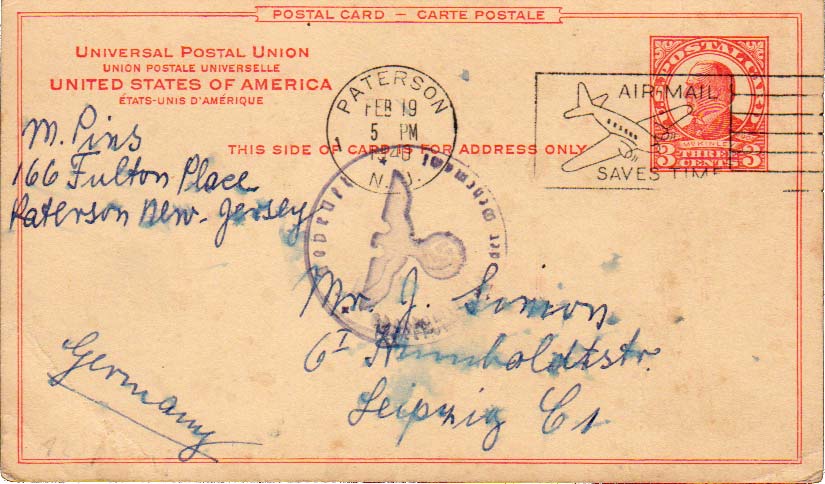 POSTAL CARD — CARTE POSTALE
UNIVERSAL POSTAL UNION
UNION POSTALE UNIVERSELLE
UNITED STATES OF AMERICA
ÉTATS-UNIS D'AMÉRIQUE
THIS SIDE OF CARD IS FOR ADDRESS ONLY
PATERSON
FEB 19
5 PM
1940
N.J.
1
AIR MAIL
SAVES TIME
POSTAL CARD
McKINLEY
3 THREE 3
CENTS
M. Pins
166 Fulton Place
Paterson New-Jersey
der Wehrmacht
Mr. J. Simon
Humboldtstr.
Leipzig C1
Germany